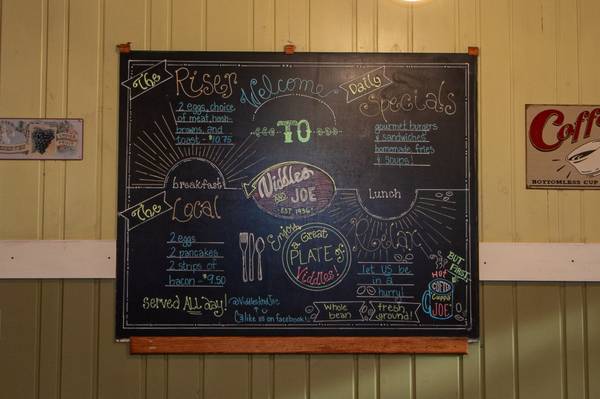 The
Riser
2 eggs, choice
of meat, hash-
browns, and
toast - $10.75
breakfast
The
Local
2 eggs
2 pancakes
2 strips of
bacon - $9.50
served ALL day!
Welcome
TO
Viddles
AND
JOE
EST. 1936!
Enjoy
a Great
PLATE of
Viddles!
@ViddlesAndJoe
like us on facebook!
Daily
Specials
gourmet burgers
& sandwiches
homemade fries
& soups!
Lunch
Relax
let us be
in a
hurry!
Whole
bean
fresh
ground!
BUT
FIRST
Hot
Cuppa
JOE
Coffe
BOTTOMLESS CUP